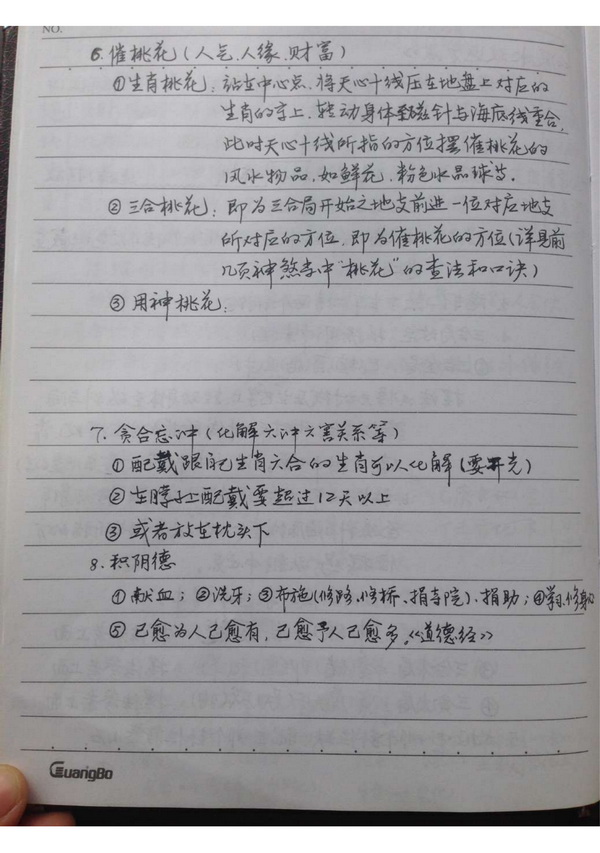 NO.
6.催桃花(人气.人缘.财富)
①生肖桃花:站在中心点.将天心十线压在地盘上对应的
生肖的字上.转动身体至磁针与海底线重合.
此时天心十线所指的方位摆催桃花的
风水物品.如鲜花.粉色水晶球等.
②三合桃花:即为三合局开始之地支前进一位对应地支
所对应的方位.即为催桃花的方位(详见前
几页神煞学中"桃花"的查法和口诀)
③用神桃花:
7.贪合忘冲(化解六冲六害关系等)
①配戴跟自己生肖六合的生肖可以化解(要开光)
②在脖子上配戴要超过12天以上
③或者放在枕头下
8.积阴德
①献血;②洗牙;③布施(修路.修桥.捐寺院).捐助;④学习.修身心
⑤已愈为人已愈有,已愈予人已愈多.《道德经》
GuangBo